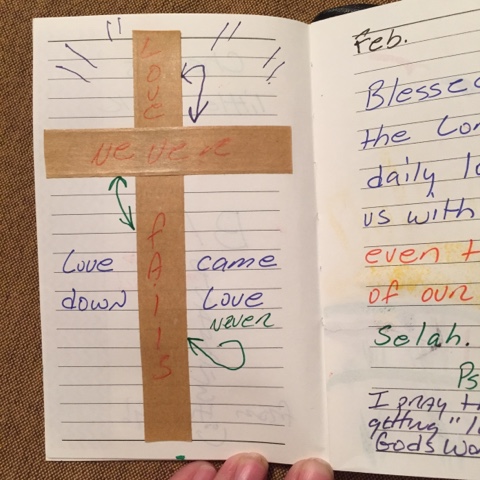 L
o
v
e
Never
f
A
i
l
s
Love came
down Love
never
Feb.
Blesse
the Lor
daily lo
us with
even t
of our
Selah.
Ps
I pray th
getting "l
Gods Wo